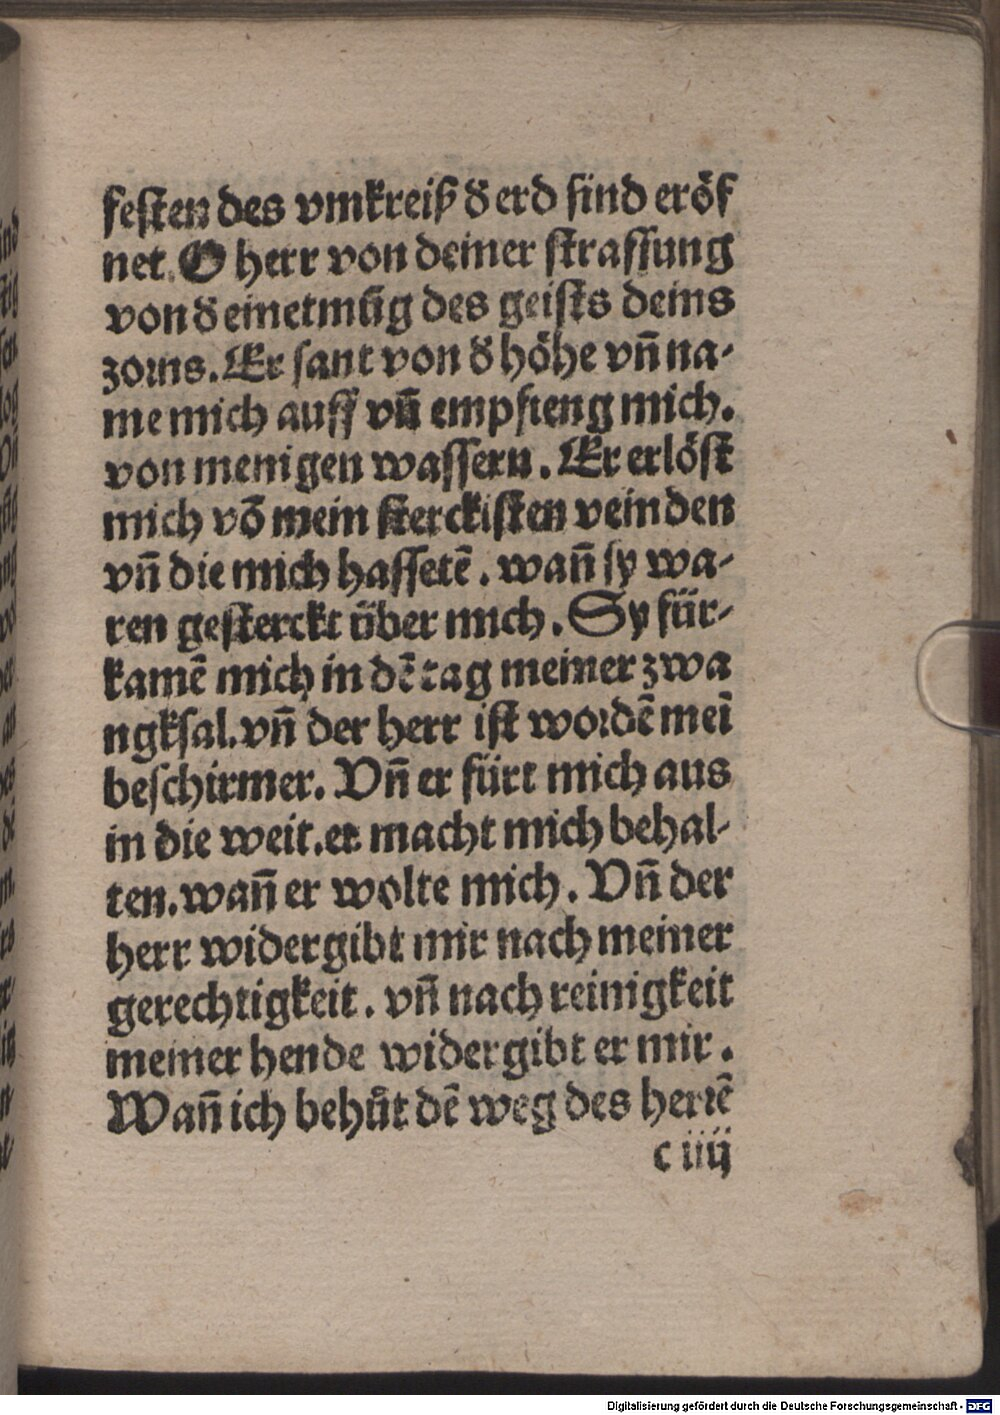 festen des vmkreiß d̕ erd sind eröf
net. O herr von deiner straffung
von d̕ einetmůg des geists deins
zorns. Er sant von d̕ höhe vn̄ na-
me mich auff vn̄ empfieng mich.
von menigen wassern. Er erlöst
mich vō mein sterckisten veinden
vn̄ die mich hassetē. wan̄ sy wa-
ren gesterckt über mich. Sy für-
kamē mich in dē tag meiner zwa
ngksal. vn̄ der herr ist wordē mei̅
beschirmer. Vn̄ er fürt mich aus
in die weit. er macht mich behal-
ten. wan̄ er wolte mich. Vn̄ der
herr widergibt mir nach meiner
gerechtigkeit. vn̄ nach reinigkeit
meiner hende widergibt er mir.
Wan̄ ich behůt dē weg des herrē
c iiij
Digitalisierung gefördert durch die Deutsche Forschungsgemeinschaft - DFG